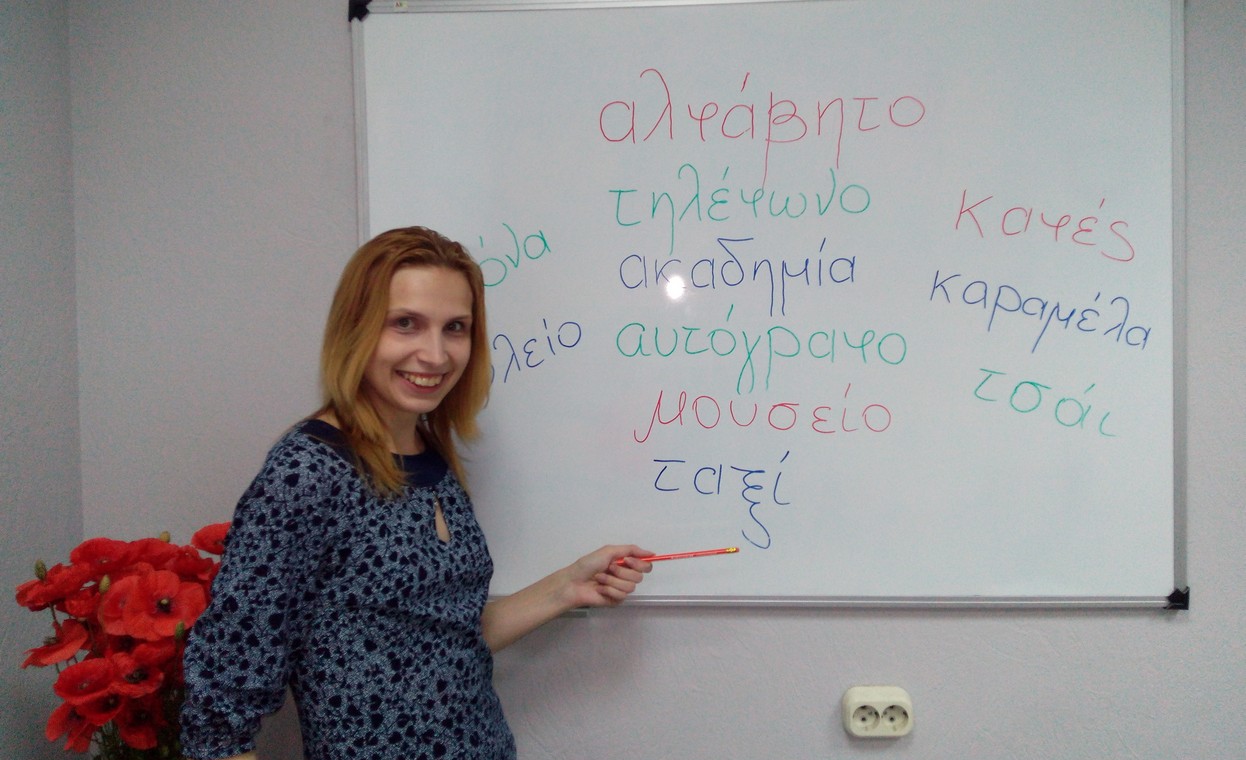 αλφάβητο
τηλέφωνο
ακαδημία
αυτόγραφο
μουσείο
ταξί
καφές
καραμέλα
τσάι